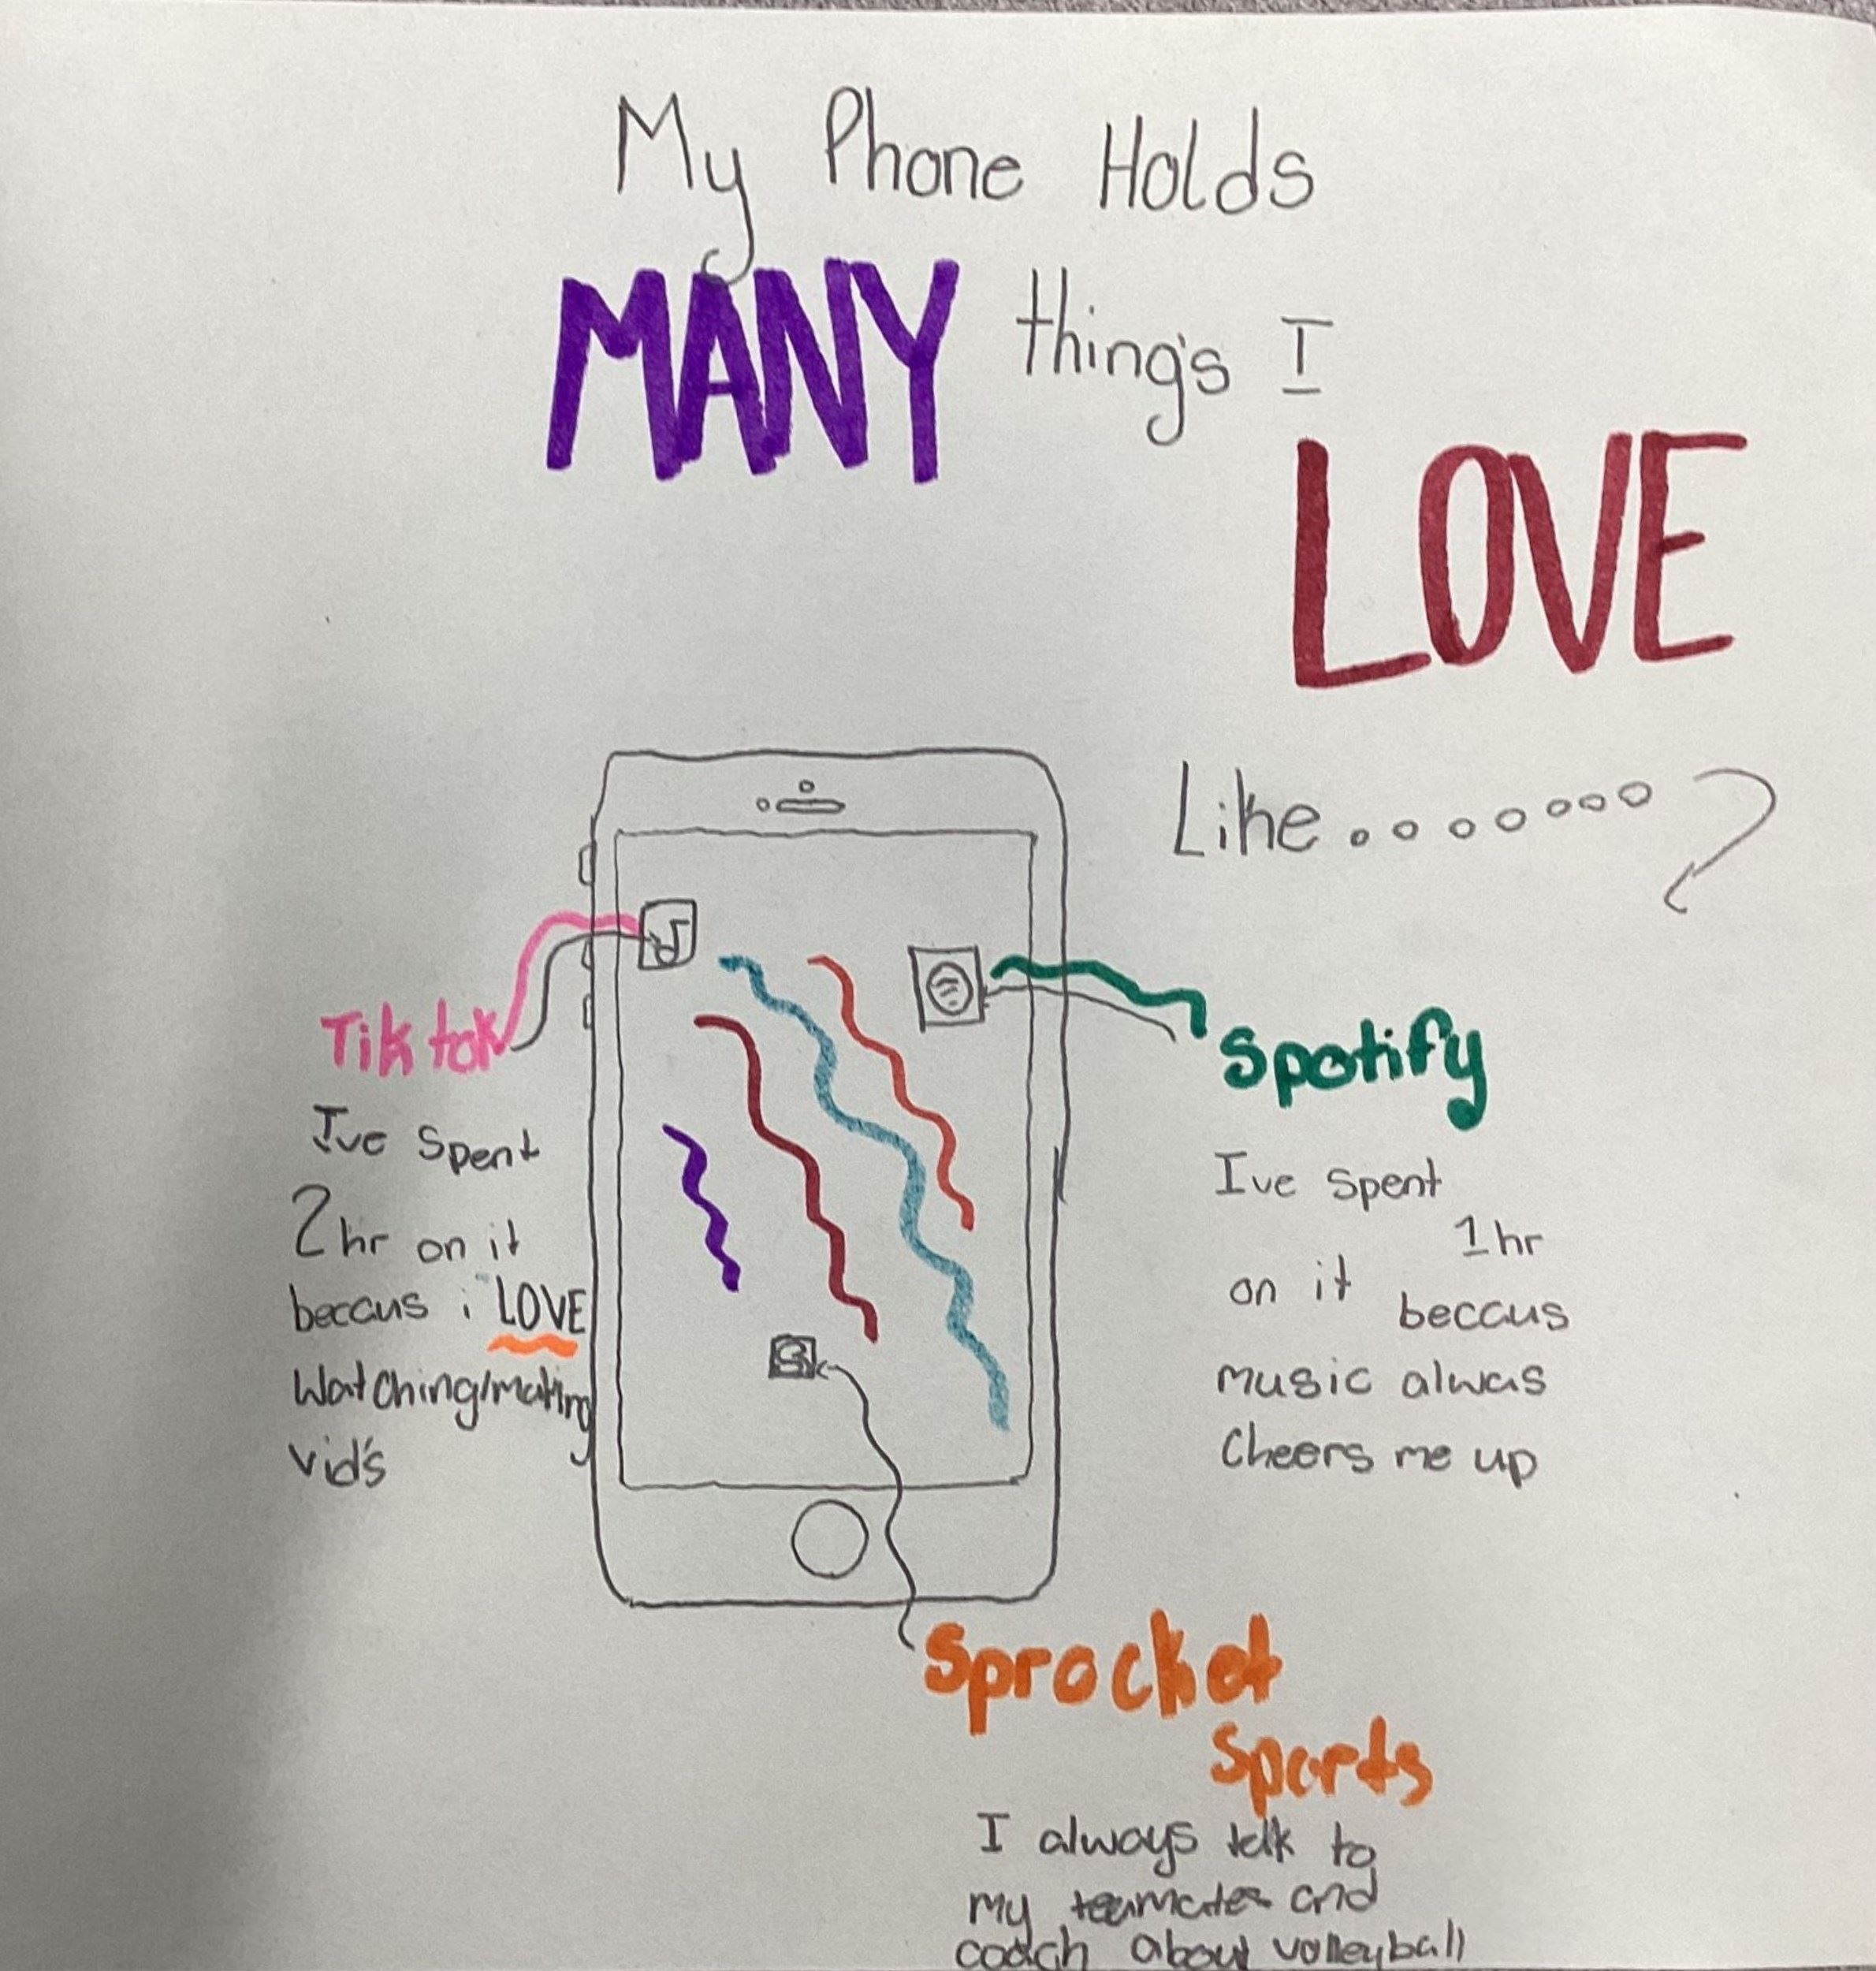 My Phone Holds
MANY thing's I
LOVE
Like........
Tik tok
Ive spent
2 hr on it
becaus i LOVE
Watching/making
vid's
Spotify
Ive spent
1 hr
on it becaus
music alwas
Cheers me up
Sprocket
Sports
I always talk to
my teamates and
coach about volleyball